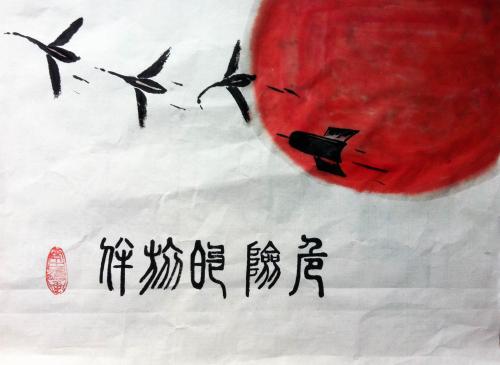 危險的旅伴